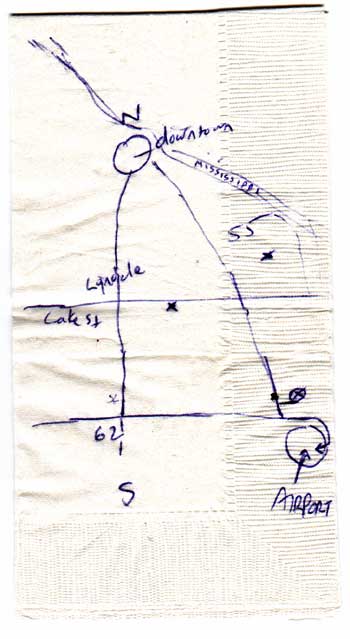 N
downtown
MISSISSIPPI
55
Lyndale
Lake St
62
S
AIRPORT